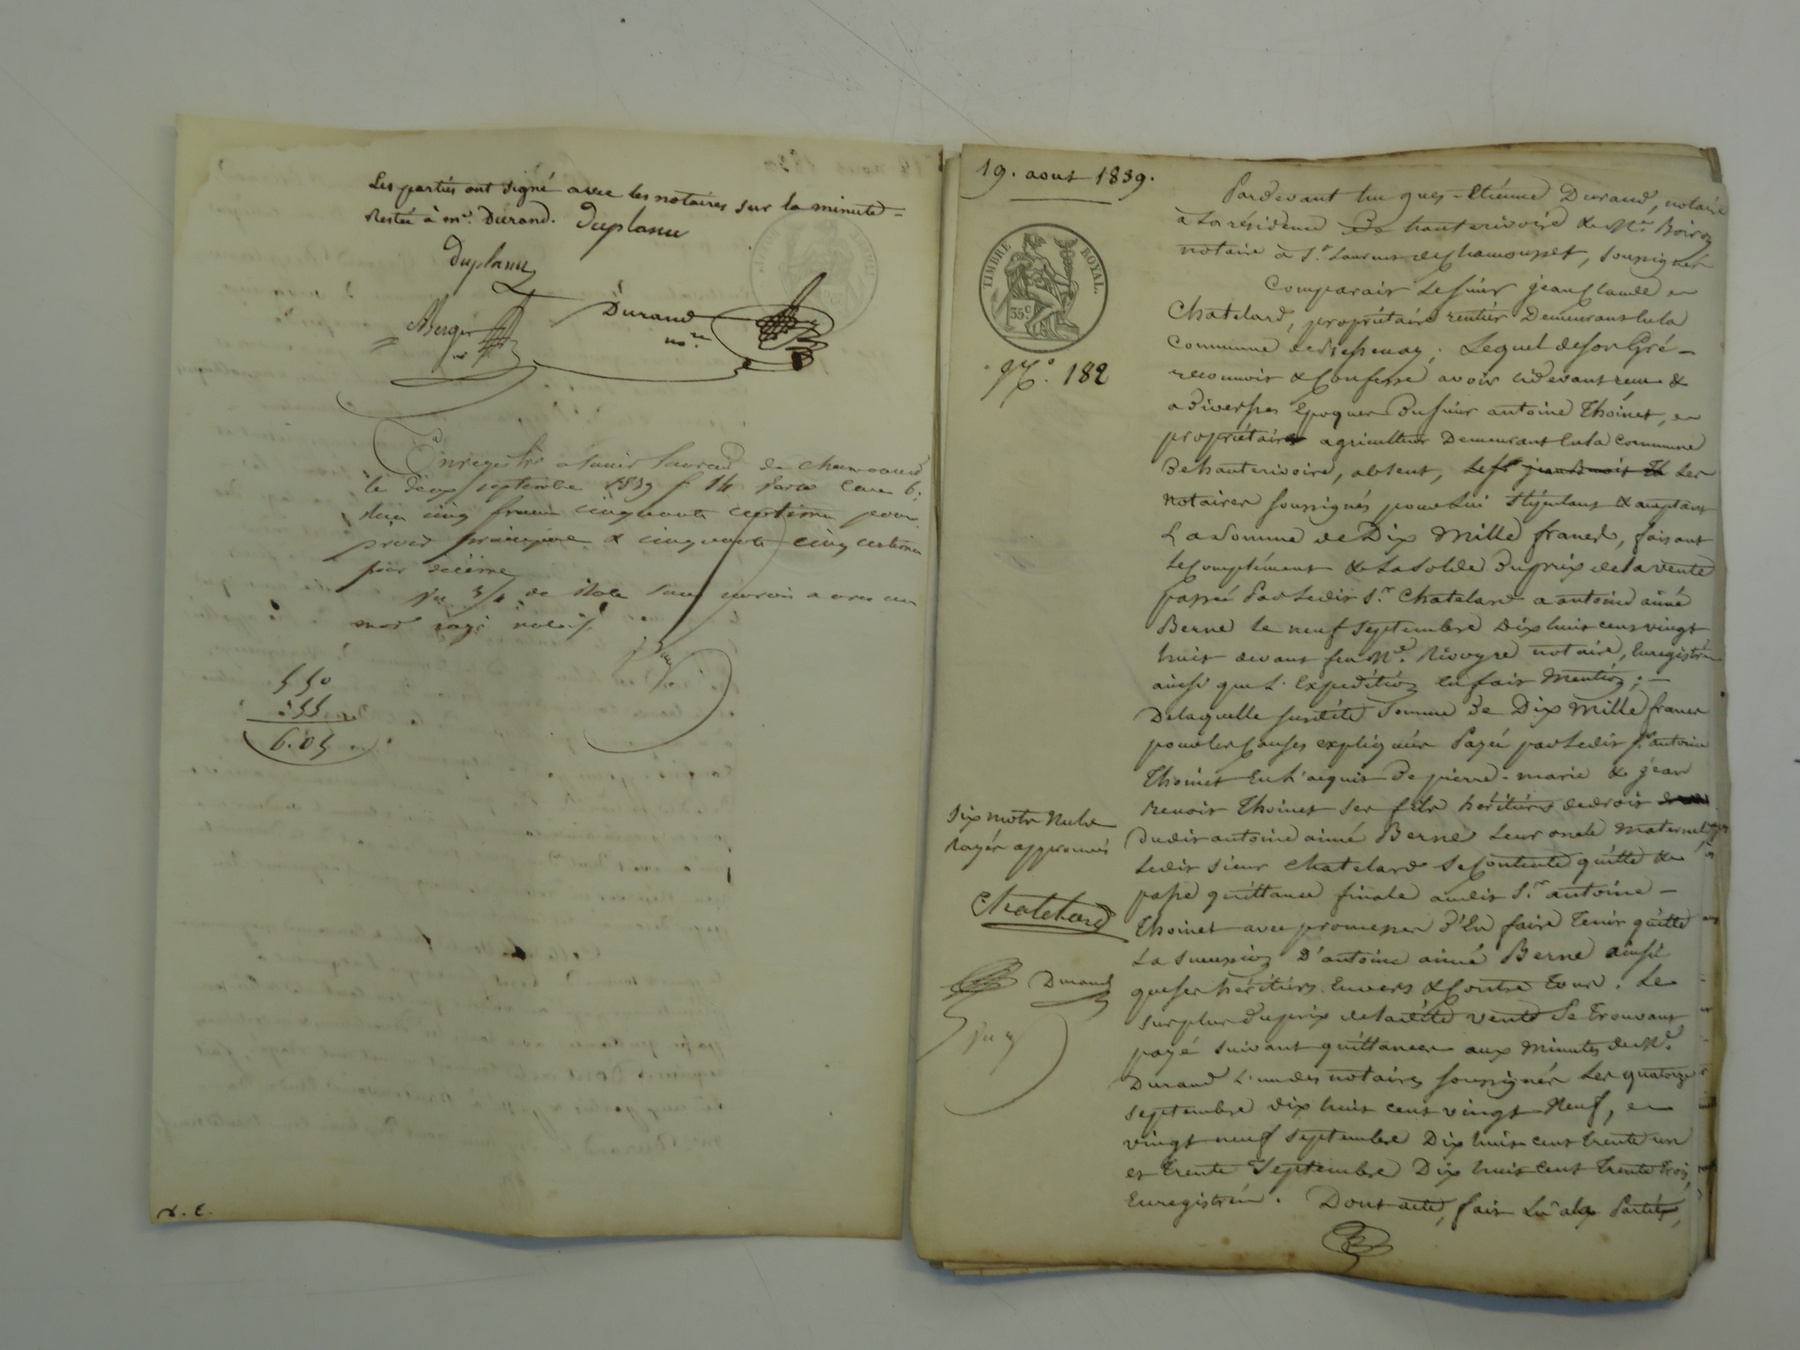 Les parties ont signé avec les notaires sur la minute
Restée à me. Durand. Duplanu
Duplanu
Berger
nre
Durand
nore
Enregistré à Saint Laurent de chamousset
le deux septembre 1839 f. 14 Recto Case 6.
cinq francs cinquante centimes pour
droit principal & cinquante cinq centimes
pour décime
mot rayé
550
.55
6.05
19. aout 1839.
TIMBRE ROYAL.
35c
No. 182
Pardevant hugues-Etiénne Durand, notaire
à la résidence De hauterivoire & Me. Boiron
notaire à St. Laurent de chamousset, soussignés
Comparait Le sieur jean Claude
Chatelard, propriétaire rentier Demeurant en la
Commune de Bessenay, Lequel de son Gré
reconnoit & Confesse avoir cidevant reçu &
a diverses Epoques Du sieur antoine Thoinet,
propriétaire agriculteur Demeurant en la Commune
De hauterivoire, absent, Les
Notaires soussignés pour lui stipulant & acceptant
La Somme de Dix Mille francs, faisant
Le Complément & La Solde Du prix de la vente
passée Par Ledit Sr. Chatelard a antoine aimé
Berne le neuf septembre Dix huit cent vingt
huit devant feu Me. Rivoyre notaire, Enregistrée
ainsi que L'Expédition En fait Mention;
De laquelle susdite Somme De Dix Mille francs
pour les Causes expliquées Payée par Ledit Sr. antoine
Thoinet En L'acquit De pierre-marie & jean
Benoit Thoinet Ses fils héritiers de droit
Dudit antoine aimé Berne Leur oncle Maternel,
Ledit Sieur Chatelard Se Contente quitte &
passe quittance finale audit Sr. antoine
Thoinet avec promesse D'En faire Tenir quitte
La Succession D'antoine aimé Berne ainsi
que ses héritiers Envers & Contre Tous. Le
Surplus Du prix de ladite vente Se Trouvant
payé suivant quittances aux Minutes de Me.
Durand L'un des notaires soussignés Les quatorze
Septembre dix huit cent vingt Neuf,
vingt neuf septembre Dix huit cent trente un
et Trente Septembre Dix huit cent Trente trois
Enregistrées. Dont acte, fait Lu aux Parties,
Six mots Nuls
rayés approuvés
Chatelard
Durand
x. c.